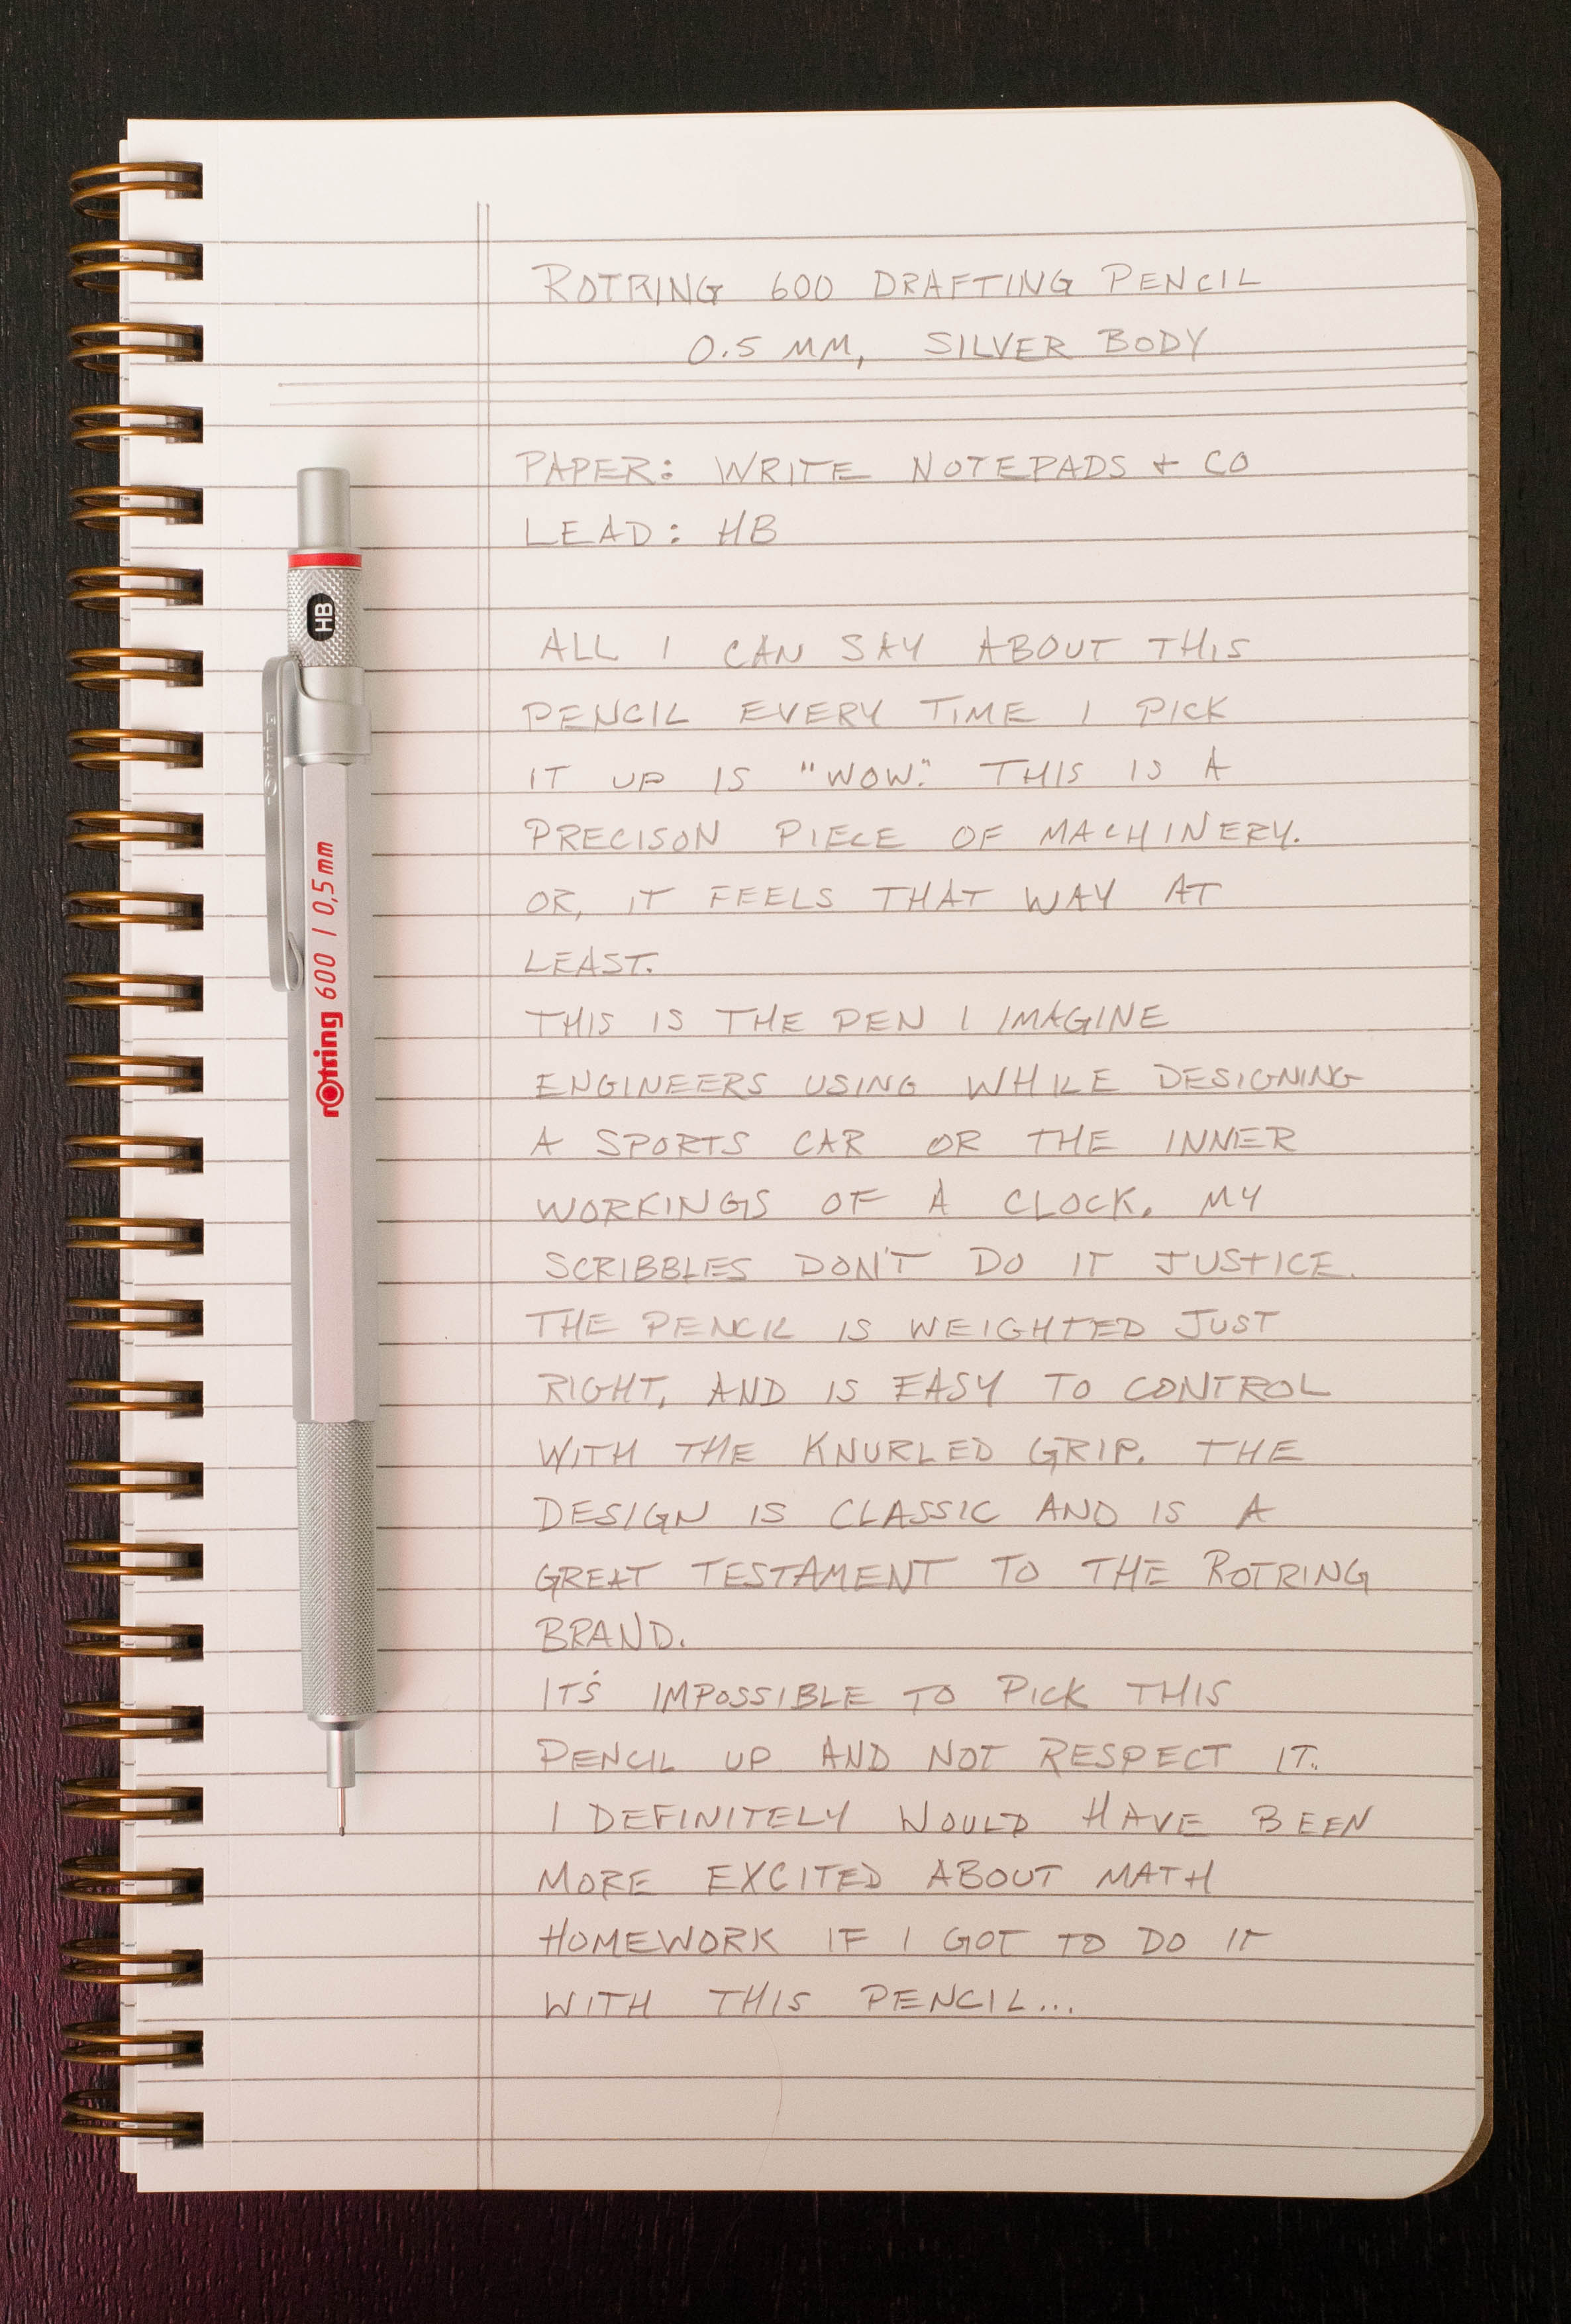 ROTRING 600 DRAFTING PENCIL
0.5 MM, SILVER BODY
PAPER: WRITE NOTEPADS + CO
LEAD: HB
ALL I CAN SAY ABOUT THIS
PENCIL EVERY TIME I PICK
IT UP IS "WOW." THIS IS A
PRECISON PIECE OF MACHINERY.
OR, IT FEELS THAT WAY AT
LEAST.
THIS IS THE PEN I IMAGINE
ENGINEERS USING WHILE DESIGNING
A SPORTS CAR OR THE INNER
WORKINGS OF A CLOCK. MY
SCRIBBLES DON'T DO IT JUSTICE.
THE PENCIL IS WEIGHTED JUST
RIGHT, AND IS EASY TO CONTROL
WITH THE KNURLED GRIP. THE
DESIGN IS CLASSIC AND IS A
GREAT TESTAMENT TO THE ROTRING
BRAND.
IT'S IMPOSSIBLE TO PICK THIS
PENCIL UP AND NOT RESPECT IT.
I DEFINITELY WOULD HAVE BEEN
MORE EXCITED ABOUT MATH
HOMEWORK IF I GOT TO DO IT
WITH THIS PENCIL...
HB
rotring
rotring 600 | 0,5 mm